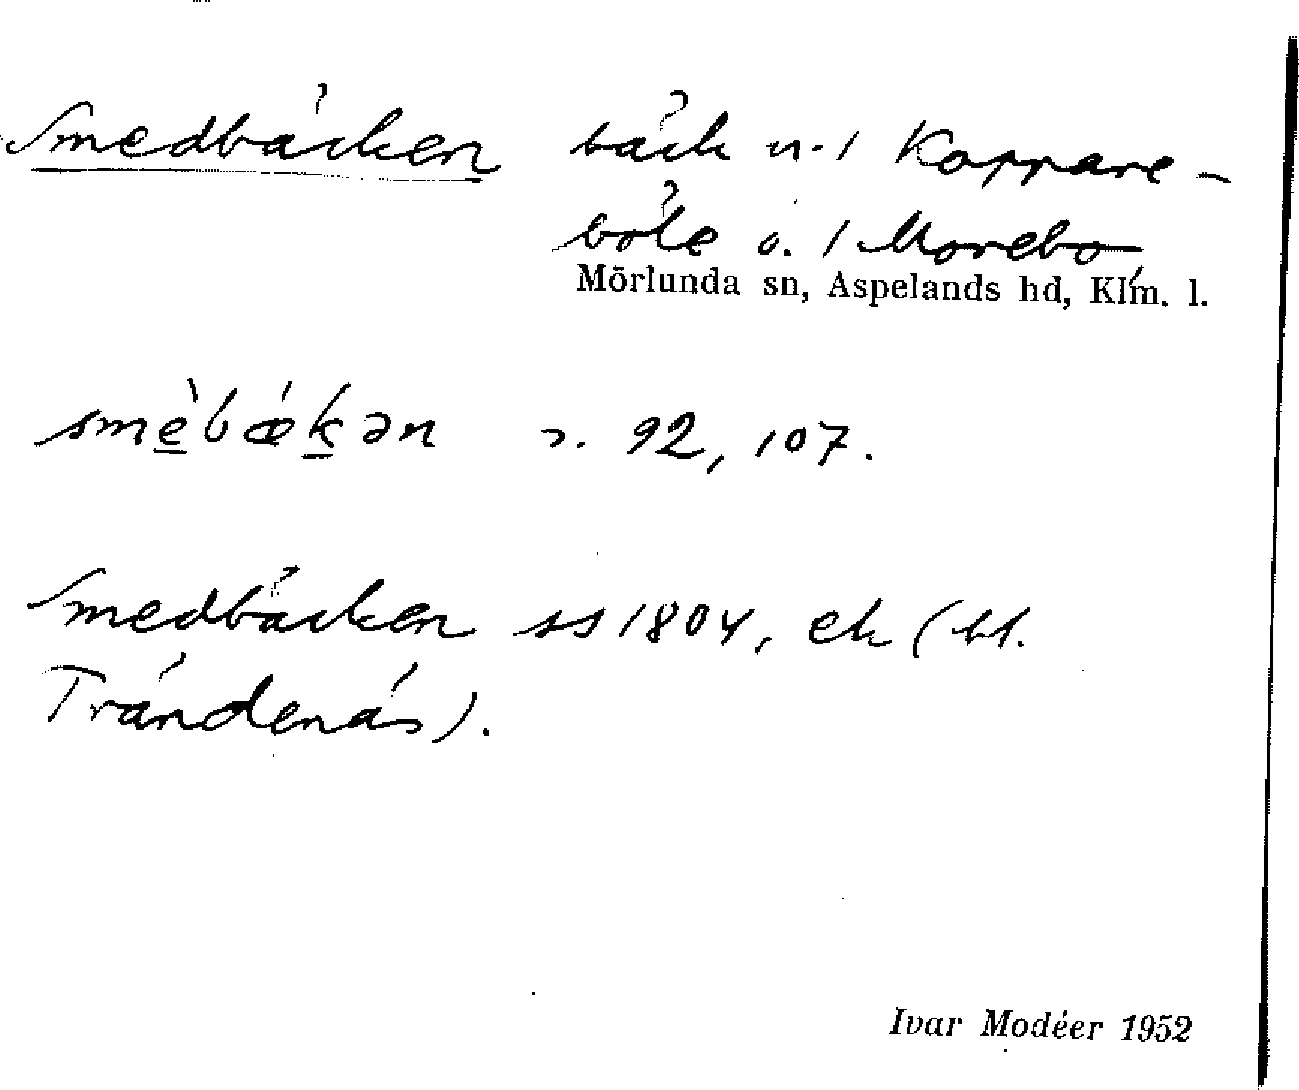 Smedbäcken bäck n. / Koppare-
böle o. / Morebo,
Mörlunda sn, Aspelands hd, Klm. l.
smè̱bǽḵən s. 92, 107.
Smedbäcken ss 1804, ek (bl.
Trändenäs).
Ivar Modéer 1952